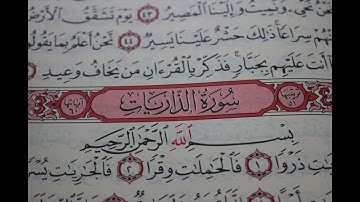 نُحْىِۦ وَنُمِيتُ وَإِلَيْنَا ٱلْمَصِيرُ ٤٣ يَوْمَ تَشَقَّقُ ٱلْأَرْضُ
عَنْهُمْ سِرَاعًا ذَٰلِكَ حَشْرٌ عَلَيْنَا يَسِيرٌ ٤٤ نَّحْنُ أَعْلَمُ بِمَا يَقُولُونَ
أَنتَ عَلَيْهِم بِجَبَّارٍ فَذَكِّرْ بِٱلْقُرْءَانِ مَن يَخَافُ وَعِيدِ
سُورَةُ الذَّارِيَاتِ
بِسْمِ ٱللَّهِ ٱلرَّحْمَٰنِ ٱلرَّحِيمِ
ذَرْوًا ١ فَٱلْحَٰمِلَٰتِ وِقْرًا ٢ فَٱلْجَٰرِيَٰتِ يُسْرًا